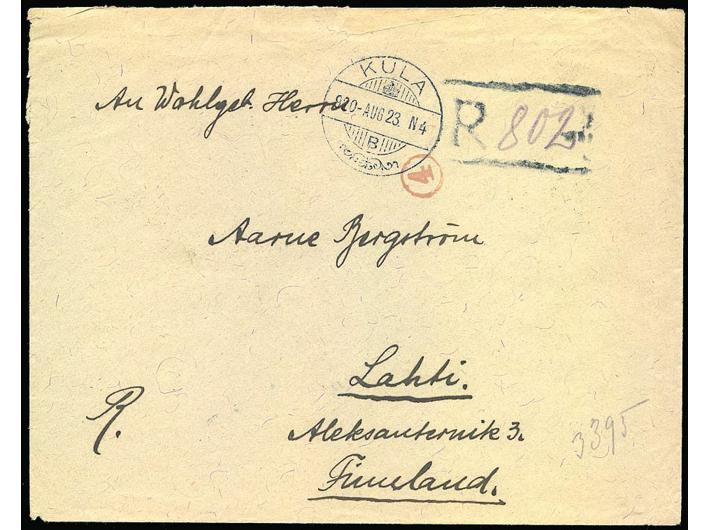 KULA
920-AUG 23. N4
B
R 802
An Wohlgeb. Herrn
4
Aarne Bergström
Lahti.
R.
Aleksanternik 3.
3395
Finnland.